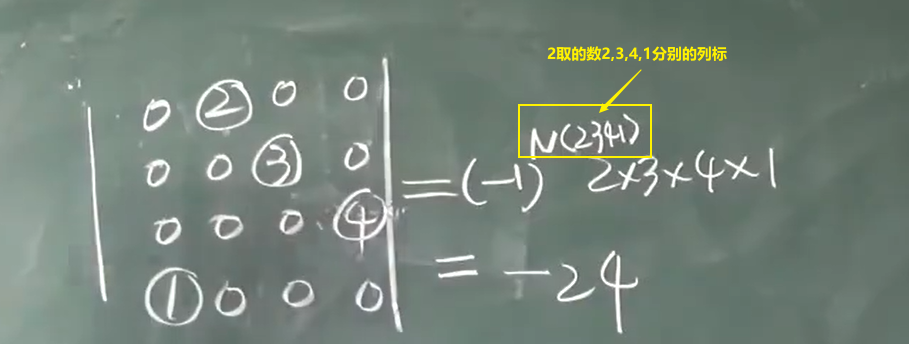 2取的数2,3,4,1分别的列标
0 ② 0 0
0 0 ③ 0
0 0 0 ④
① 0 0 0
=(-1)^N(2341) 2×3×4×1
= -24